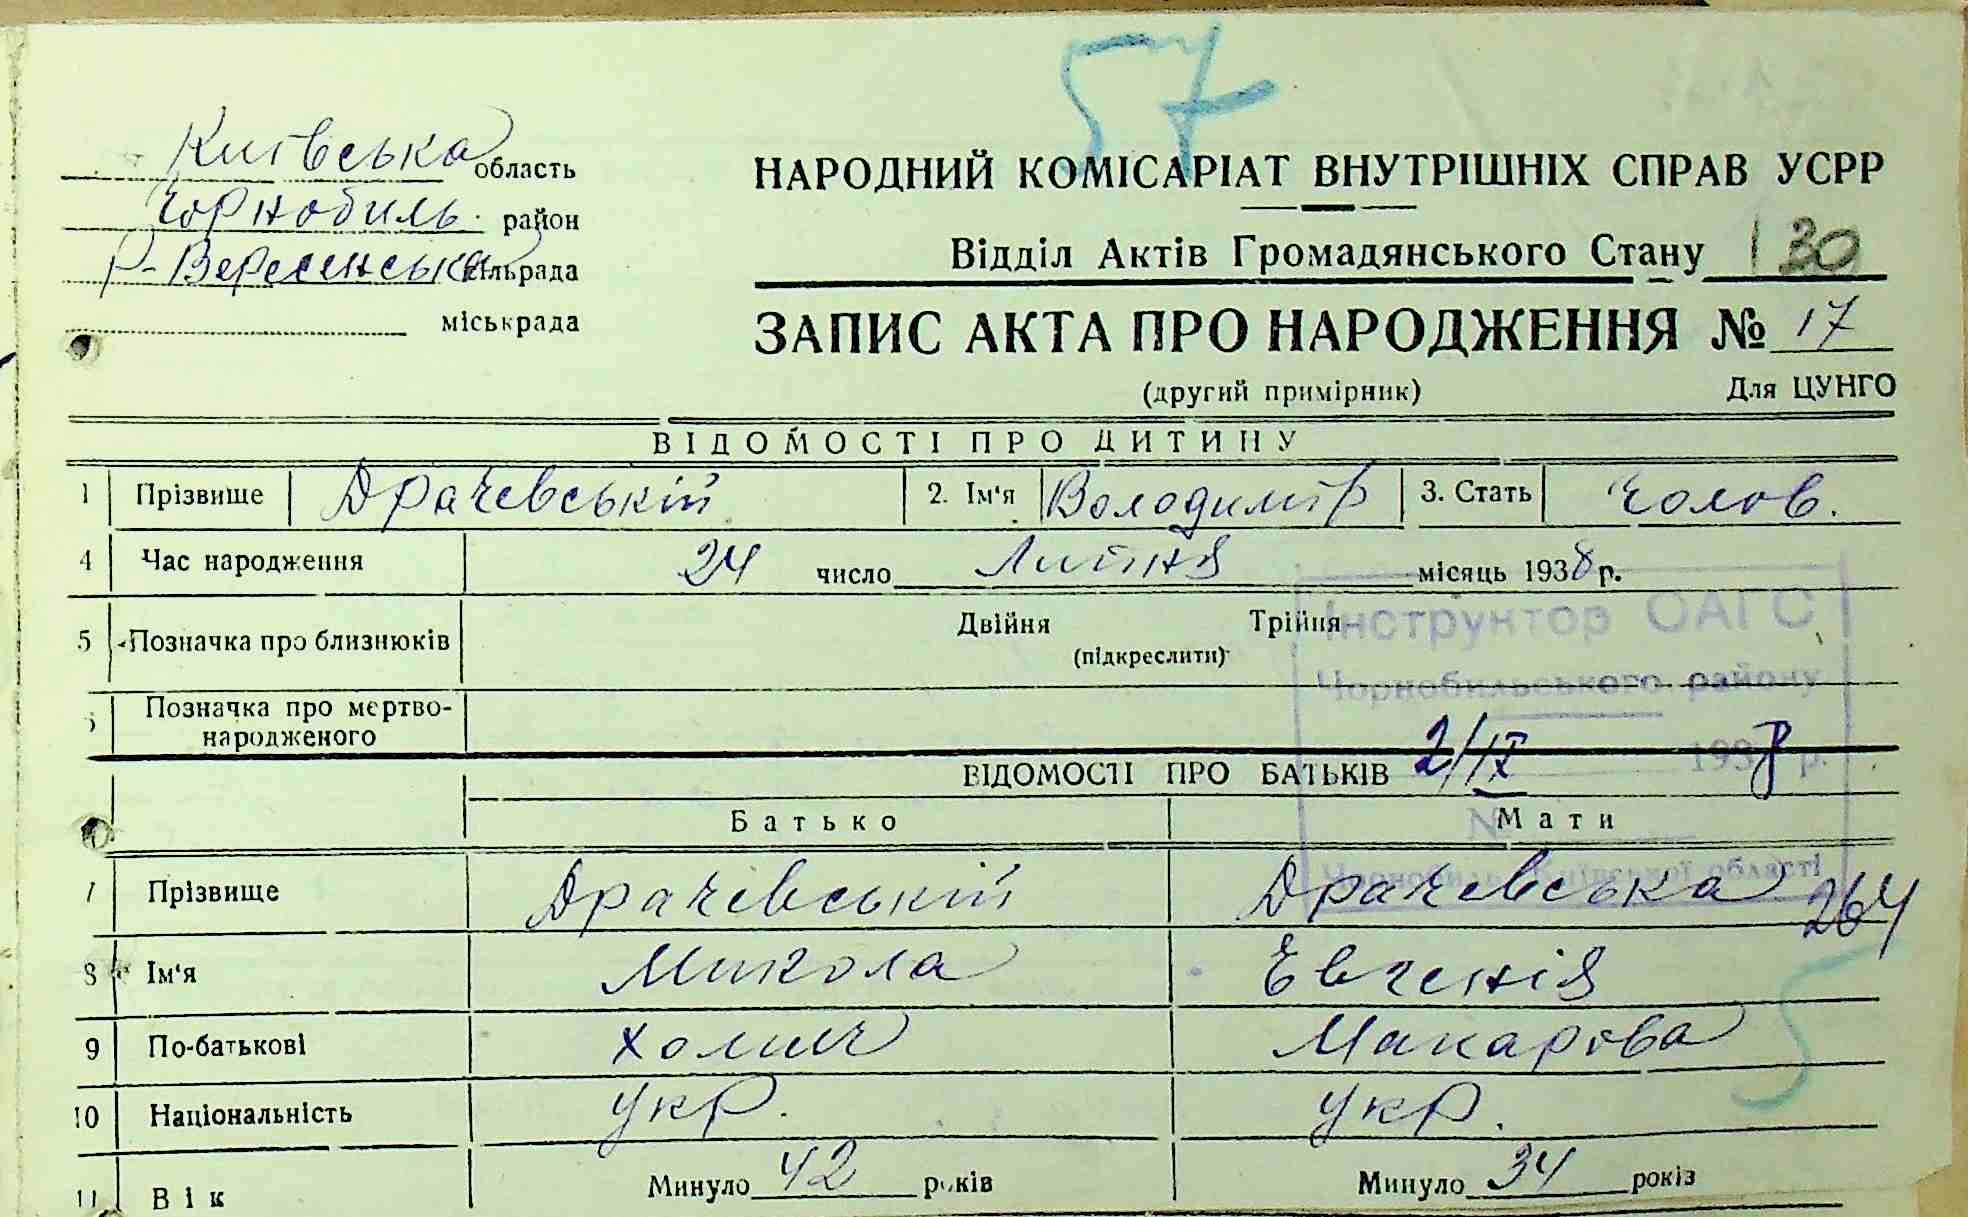 57
Київська область
Чорнобиль. район
Р-Вересенська сільрада
міськрада
НАРОДНИЙ КОМІСАРІАТ ВНУТРІШНІХ СПРАВ УСРР
Відділ Актів Громадянського Стану 130
ЗАПИС АКТА ПРО НАРОДЖЕННЯ № 17
(другий примірник) Для ЦУНГО
ВІДОМОСТІ ПРО ДИТИНУ
1 Прізвище Драчевській 2. Ім'я Володимір 3. Стать Чолов.
4 Час народження 24 число Липня місяць 1938 р.
5 Позначка про близнюків Двійня Трійня
(підкреслити)
Інструктор ОАГС
Чорнобильського району
Позначка про мертвонародженого
2/IX 1938 р.
ВІДОМОСТІ ПРО БАТЬКІВ
Батько Мати
№
Чорнобиль Київської області
264
7 Прізвище Драчевській Драчевська
8 Ім'я Микола Евгенія
9 По-батькові Хомич Макарова
5
10 Національність Укр. Укр.
11 Вік Минуло 42 років Минуло 34 років